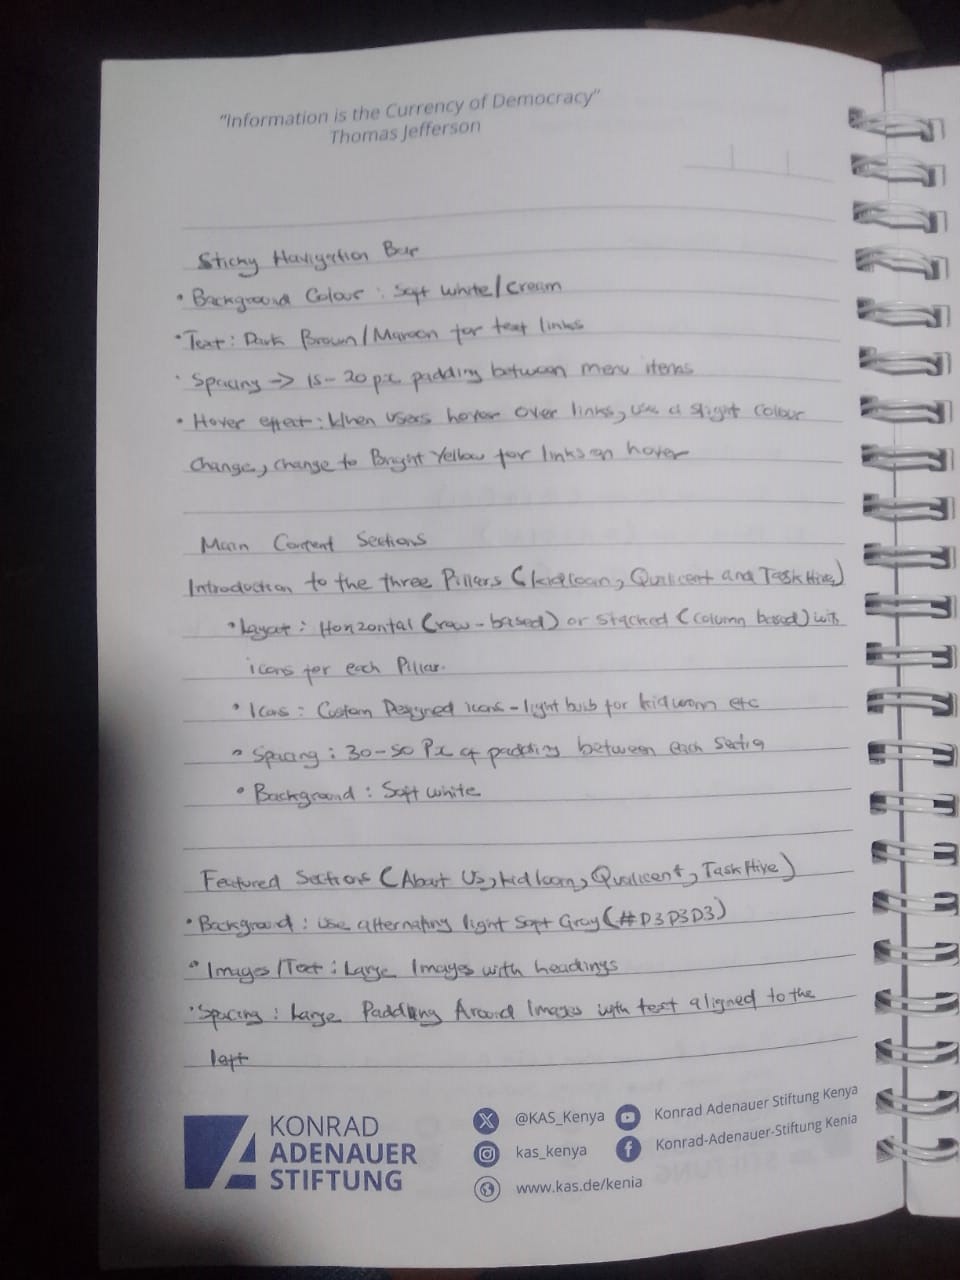 "Information is the Currency of Democracy"
Thomas Jefferson
Sticky Navigation Bar
• Background Colour : Soft white/cream
• Text : Dark Brown/Maroon for text links
• Spacing -> 15-20px padding between menu items
• Hover effect : When users hover over links, use a slight colour
change, change to Bright Yellow for links on hover
Main Content Sections
Introduction to the three Pillars (kidloan, Qualicent and TaskHive)
• Layout : Horizontal (row-based) or Stacked (column based) with
icons for each Pillar.
• Icons : Custom Designed icons - light bulb for etc
• Spacing : 30-50 Px of padding between each section
• Background : Soft white
Featured Sections (About Us, kidloan, Qualicent, TaskHive)
• Background : Use alternating light soft Gray (#D3D3D3)
• Images/Text : Large Images with headings
• Spacing : Large Padding Around Images with text aligned to the
left
KONRAD
ADENAUER
STIFTUNG
@KAS_Kenya
kas_kenya
www.kas.de/kenia
Konrad Adenauer Stiftung Kenya
Konrad-Adenauer-Stiftung Kenia